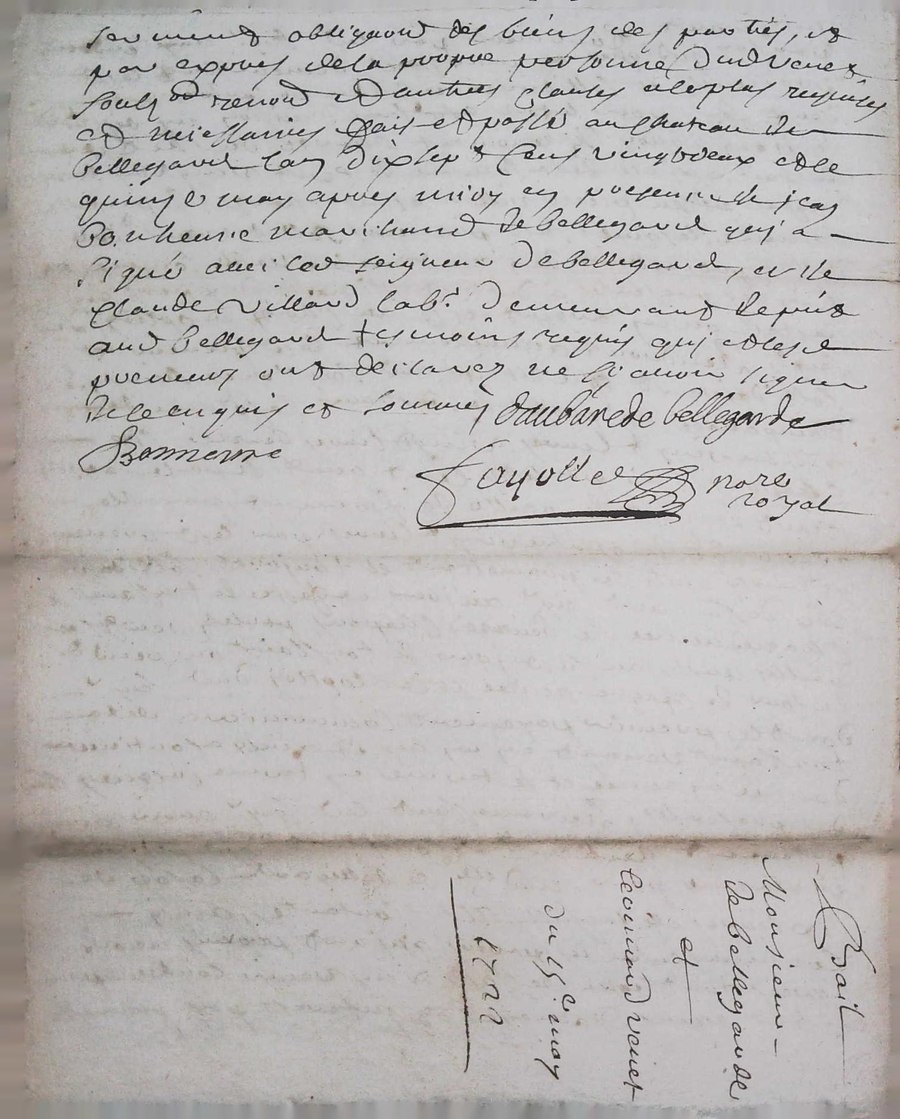 serment obligaon des biens des parties, et
par expres de la propre personne dud Venet
soubz on renon et autres clauses a le plus requises
et necessaires fait et passé au chateau de
bellegarde lan dixsept cens vingtdeux et le
quinze may apres midy en presence de jean
bonheme marchand de bellegarde qui a
signé avec led seigneur de bellegarde, et de
claude villard labr. demeurant
aud bellegarde tesmoins requis qui et led
preneur ont declarez ne scavoir signer
de ce enquis et sommés daubarede bellegarde
Bonneme
fayolle nore
royal
Bail
Monsieur
de bellegarde
et
leonard venet
du 15e may
1722